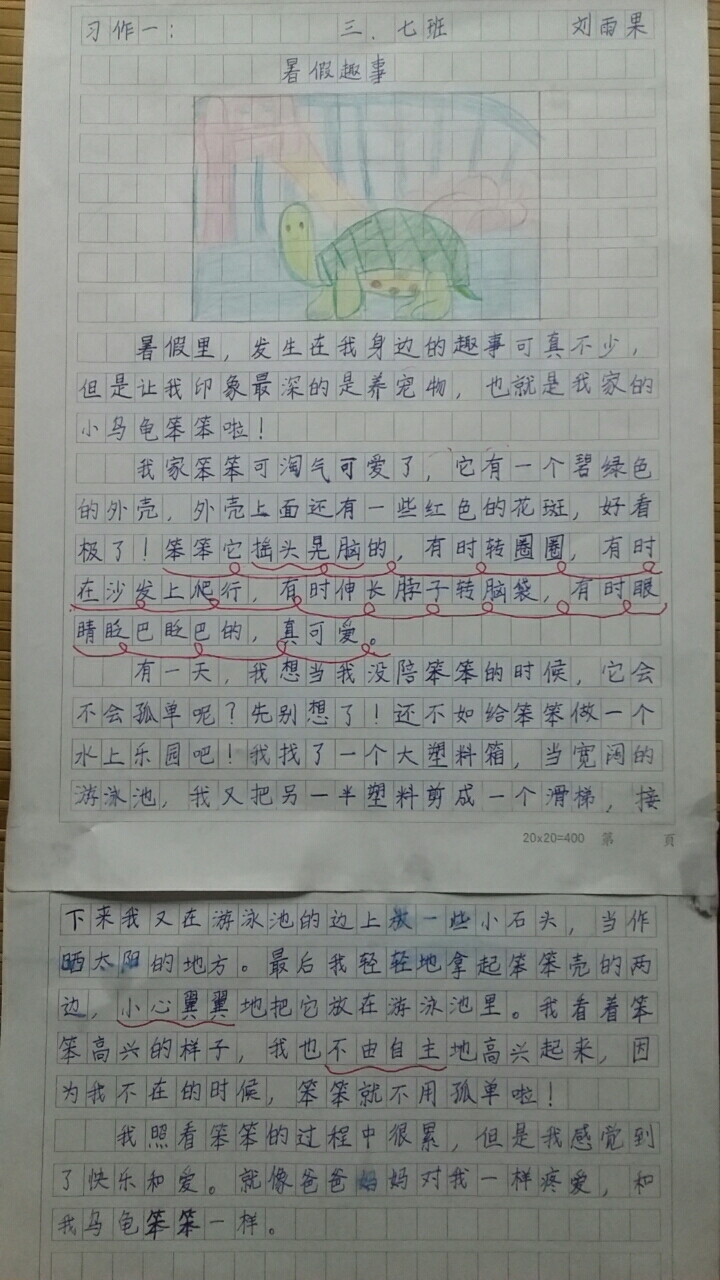 习作一： 三．七班 刘雨果
暑假趣事
暑假里，发生在我身边的趣事可真不少，
但是让我印象最深的是养宠物，也就是我家的
小乌龟笨笨啦！
我家笨笨可淘气可爱了，它有一个碧绿色
的外壳，外壳上面还有一些红色的花斑，好看
极了！笨笨它摇头晃脑的，有时转圈圈，有时
在沙发上爬行，有时伸长脖子转脑袋，有时眼
睛眨巴眨巴的，真可爱。
有一天，我想当我没陪笨笨的时候，它会
不会孤单呢？先别想了！还不如给笨笨做一个
水上乐园吧！我找了一个大塑料箱，当宽阔的
游泳池，我又把另一半塑料剪成一个滑梯，接
20x20=400 第 頁
下来我又在游泳池的边上放一些小石头，当作
晒太阳的地方。最后我轻轻地拿起笨笨壳的两
边，小心翼翼地把它放在游泳池里。我看着笨
笨高兴的样子，我也不由自主地高兴起来，因
为我不在的时候，笨笨就不用孤单啦！
我照看笨笨的过程中很累，但是我感觉到
了快乐和爱。就像爸爸妈妈对我一样疼爱，和
我乌龟笨笨一样。